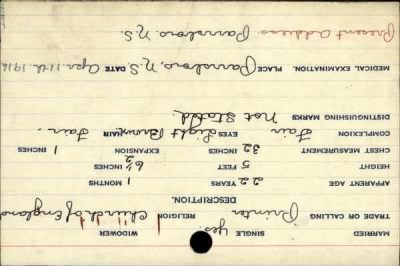 MARRIED SINGLE yes. WIDOWER
TRADE OR CALLING Printer RELIGION Church of England
DESCRIPTION.
APPARENT AGE 22 YEARS 1 MONTHS
HEIGHT 5 FEET 6½ INCHES
CHEST MEASUREMENT 32 INCHES EXPANSION 1 INCHES
COMPLEXION Fair EYES Light Brown HAIR Fair.
DISTINGUISHING MARKS Not Stated.
MEDICAL EXAMINATION. PLACE Parrsboro, N.S. DATE Apr. 11th 1916
Present Address Parrsboro. N.S.